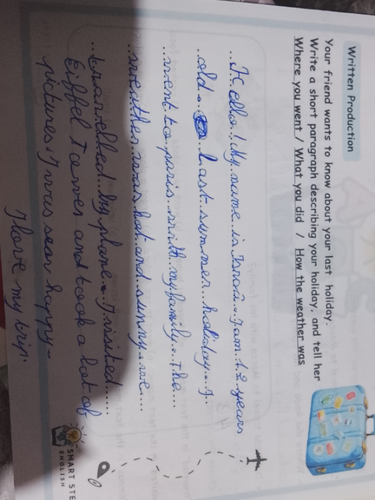 Written Production
Your friend wants to know about your last holiday.
Write a short paragraph describing your holiday, and tell her
Where you went / What you did / How the weather was
...Hello..! My name is Israà. I am 12 years
old. Last summer holiday. I..
went to paris with my family. The...
weather was hot and sunny. we...
travelled by plane. I visited.....
Eiffel Tower and took a lot of
pictures. I was sear happy.
I love my trip.
SMART STE
ENGLISH